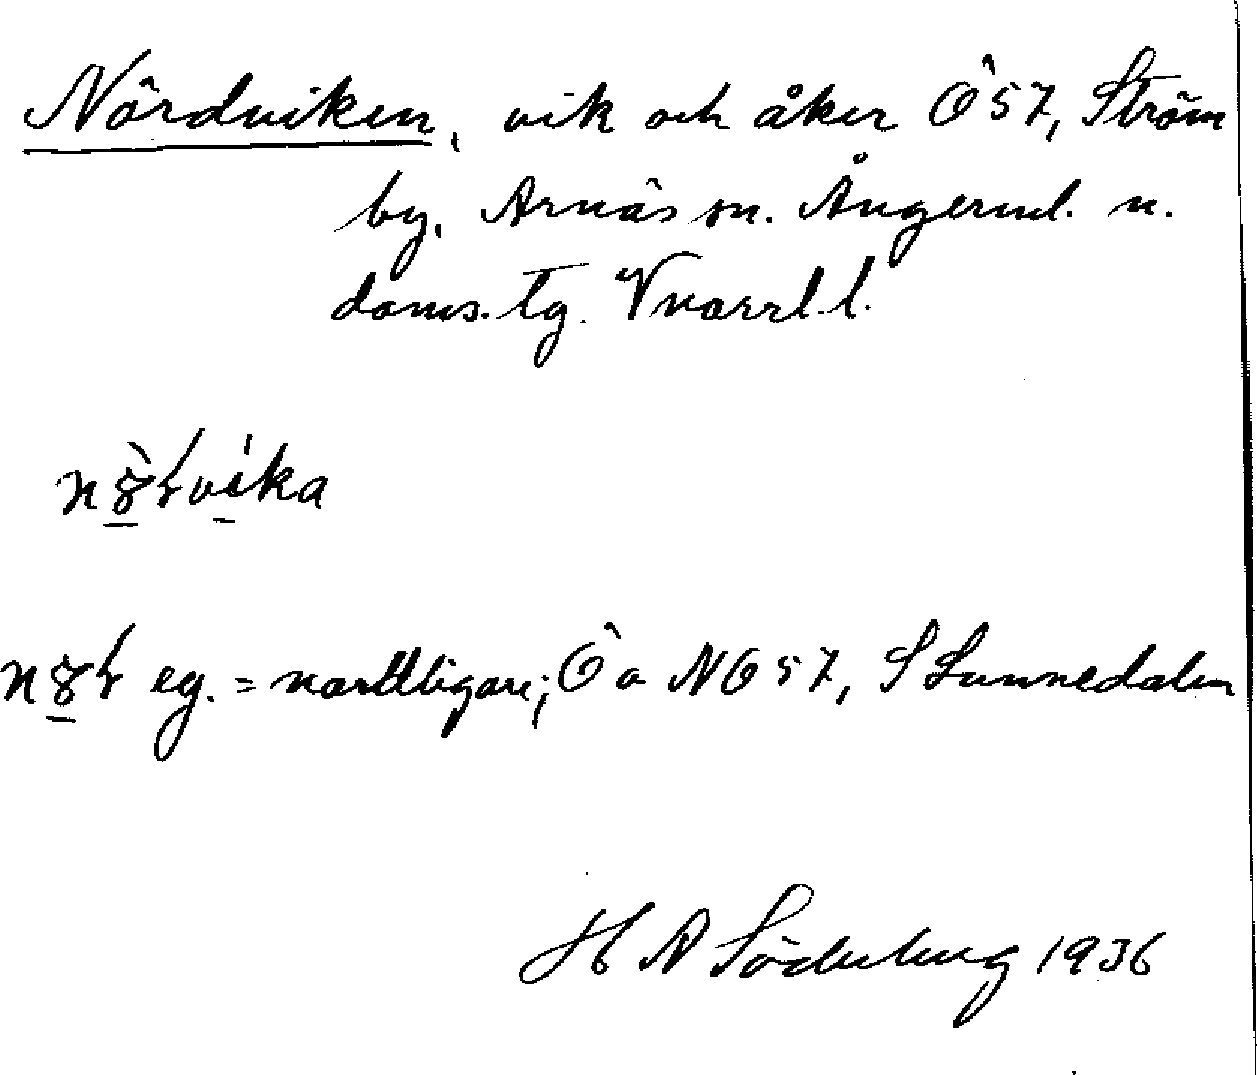 Nördviken, vik och åker Ö 57, Ström
by, Arnäs sn. Ångerml. n.
doms. tg. V norrl. l.
eg. = nordligare; Ö o NÖ 57, S Sunnedalen
H A Söderberg 1936